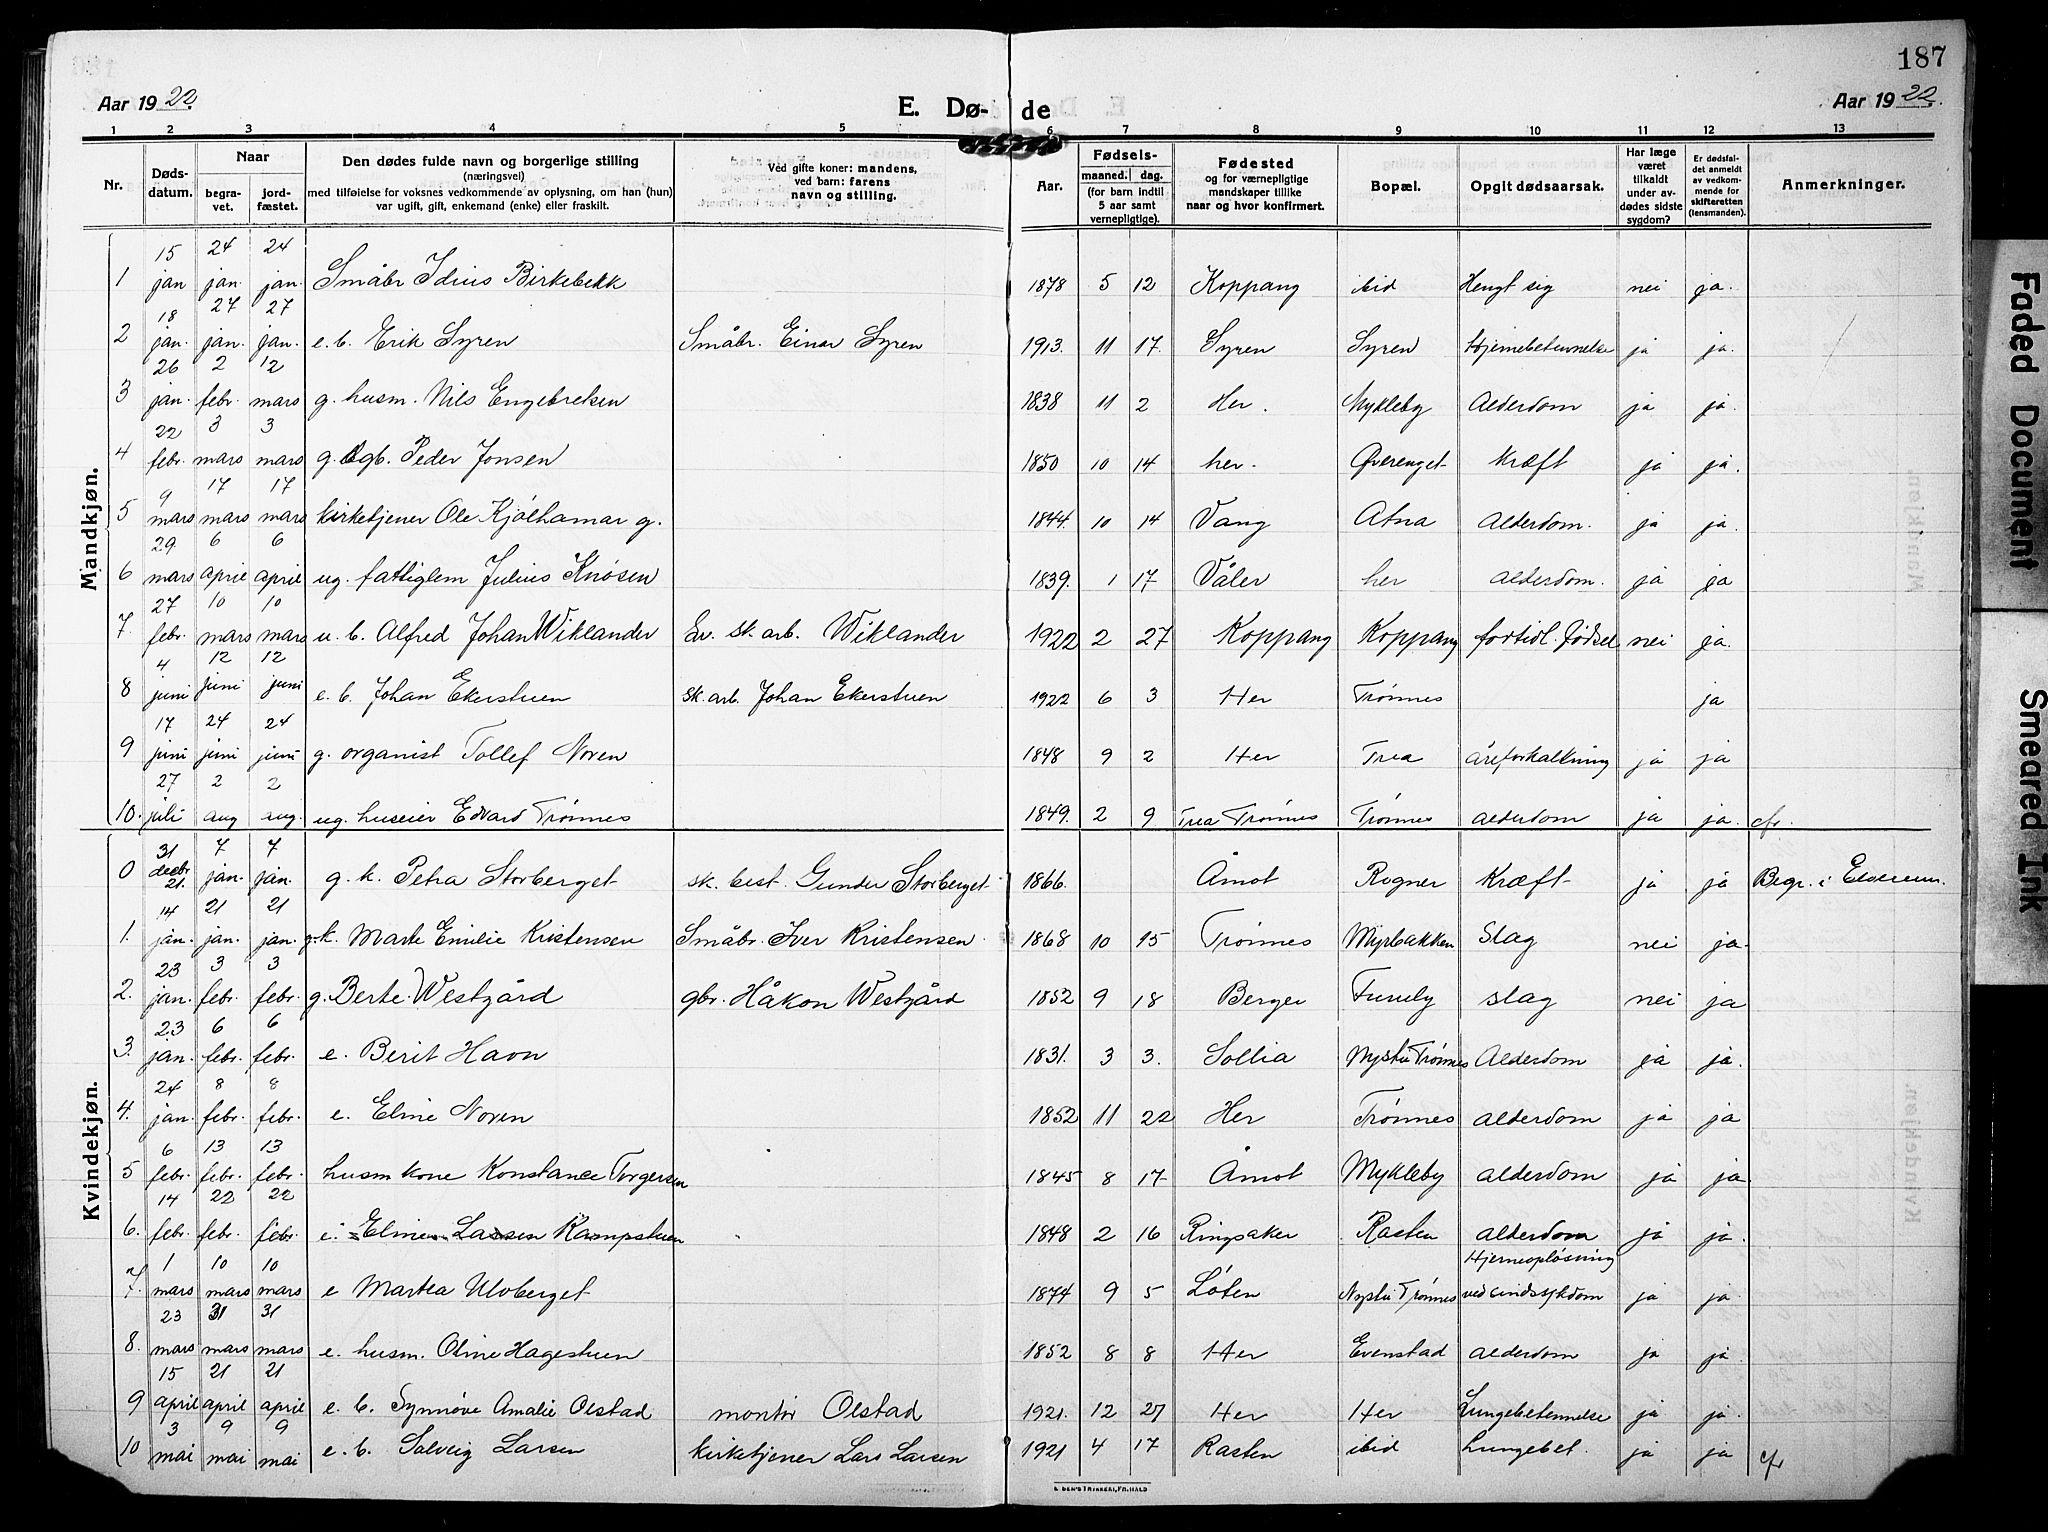 187
Aar 1922. E. Dø- de Aar 1922.
1 2 3 4 5 6 7 8 9 10 11 12 13
Nr. Døds-datum. Naar begra-vet. jord-fæstet. Den dødes fulde navn og borgerlige stilling (næringsvei) med tilføielse for voksnes vedkommende av oplysning, om han (hun) var ugift, gift, enkemand (enke) eller fraskilt. Ved gifte koner: mandens, ved barn: farens navn og stilling. Aar. Fødsels- maaned. dag. (for barn indtil 5 aar samt vernepligtige). Fødested og for værnepligtige mandskaper tillike naar og hvor konfirmert. Bopæl. Opgit dødsaarsak. Har læge været tilkaldt under av-dødes sidste sygdom? Er dødsfal-det anmeldt av vedkom-mende for skifteretten (lensmanden). Anmerkninger.
Mandkjøn.
1 15 jan 24 jan. 24 jan. Småbr Idius Birkebekk 1878 5 12 Koppang ibid Hengt sig nei ja.
2 18 jan. 27 jan. 27 jan. e. b. Erik Syren Småbr. Einar Syren 1913. 11 17. Syren Syren Hjernebetennelse ja ja.
3 26 jan. 2 febr. 12 mars g. husm. Nils Engebretsen 1838 11 2 Her. Mykleby Alderdom ja ja.
4 22 febr. 3 mars 3 mars g. gb. Peder Jonsen 1850 10 14 her. Øverenget Kræft ja ja.
5 9 mars 17 mars 17 mars kirketjener Ole Kjølhamar g. 1844. 10 14 Vang Atna Alderdom. ja ja.
6 29. mars 6 april 6 april ug. fattiglem Julius Knøsen 1839. 1 17 Våler her alderdom. ja ja
7. 27 febr. 10 mars 10 mars u. b. Alfred Johan Wiklander Sv. sk. arb. Wiklander 1922 2 27 Koppang Koppang fortidl. fødsel nei ja.
8 4 juni 12 juni 12 juni e. b. Johan Ekerstuen sk. arb. Johan Ekerstuen 1922 6 3 Her Trønnes ja
9 17 juni 24 juni 24 juni g. organist Tollef Noren 1848 9 2 Her Trea åreforkalkning ja ja
10. 27 juli 2 aug 2 aug. ug. huseier Edvard Trønnes 1849. 2 9 Trea Trønnes Trønnes alderdom ja ja. cfr.
Kvindekjøn.
0 31 decbr 21. 7 jan. 7 jan. g. k. Petra Storberget sk. best. Gunder Storberget 1866. Åmot Rogner Kræft ja ja Begr. i Elverum.
1. 14 jan. 21 jan. 21 jan. g. k. Marte Emilie Kristensen Småbr. Iver Kristensen. 1868 10 15 Trønnes Myrbakken Slag nei ja.
2. 23 jan. 3 febr. 3 febr. g. Berte Westgård gbr. Håkon Westgård 1852 9 18 Berger Furuly slag nei ja
3. 23 jan. 6 febr. 6 febr. e. Berit Havn 1831. 3 3. Sollia Nystu Trønnes Alderdom ja ja.
4. 24 jan. 8 febr. 8 febr. e. Eline Noren 1852 11 22 Her Trønnes alderdom ja ja
5 6 febr. 13 febr. 13 febr. husm kone Konstance Torgersen 1845 8 17 Åmot Mykleby alderdom ja ja
6. 14 febr. 22 febr. 22 febr. e. Eline Larsen Kampstuen 1848 2 16 Ringsaker Rasten alderdom ja ja.
7. 1 mars 10 mars 10 mars e Martea Ulvberget 1874 9 5 Løten Nystu Trønnes Hjerneopløsning ved sindssykdom ja ja.
8. 23 mars 31 mars 31 mars e. husm. Oline Hagestuen 1852 8 8 Her Evenstad alderdom ja ja.
9 15 april 21 april 21 april e. b. Synnøve Amalie Olstad montør Olstad 1921. 12 27 Her Her Lungebetennelse ja ja.
10 3 mai 9 mai 9 mai e. b. Solveig Larsen kirketjener Lars Larsen 1921 4 17 Rasten ibid Lungebet. ja ja cfr
Faded Document
Smeared Ink